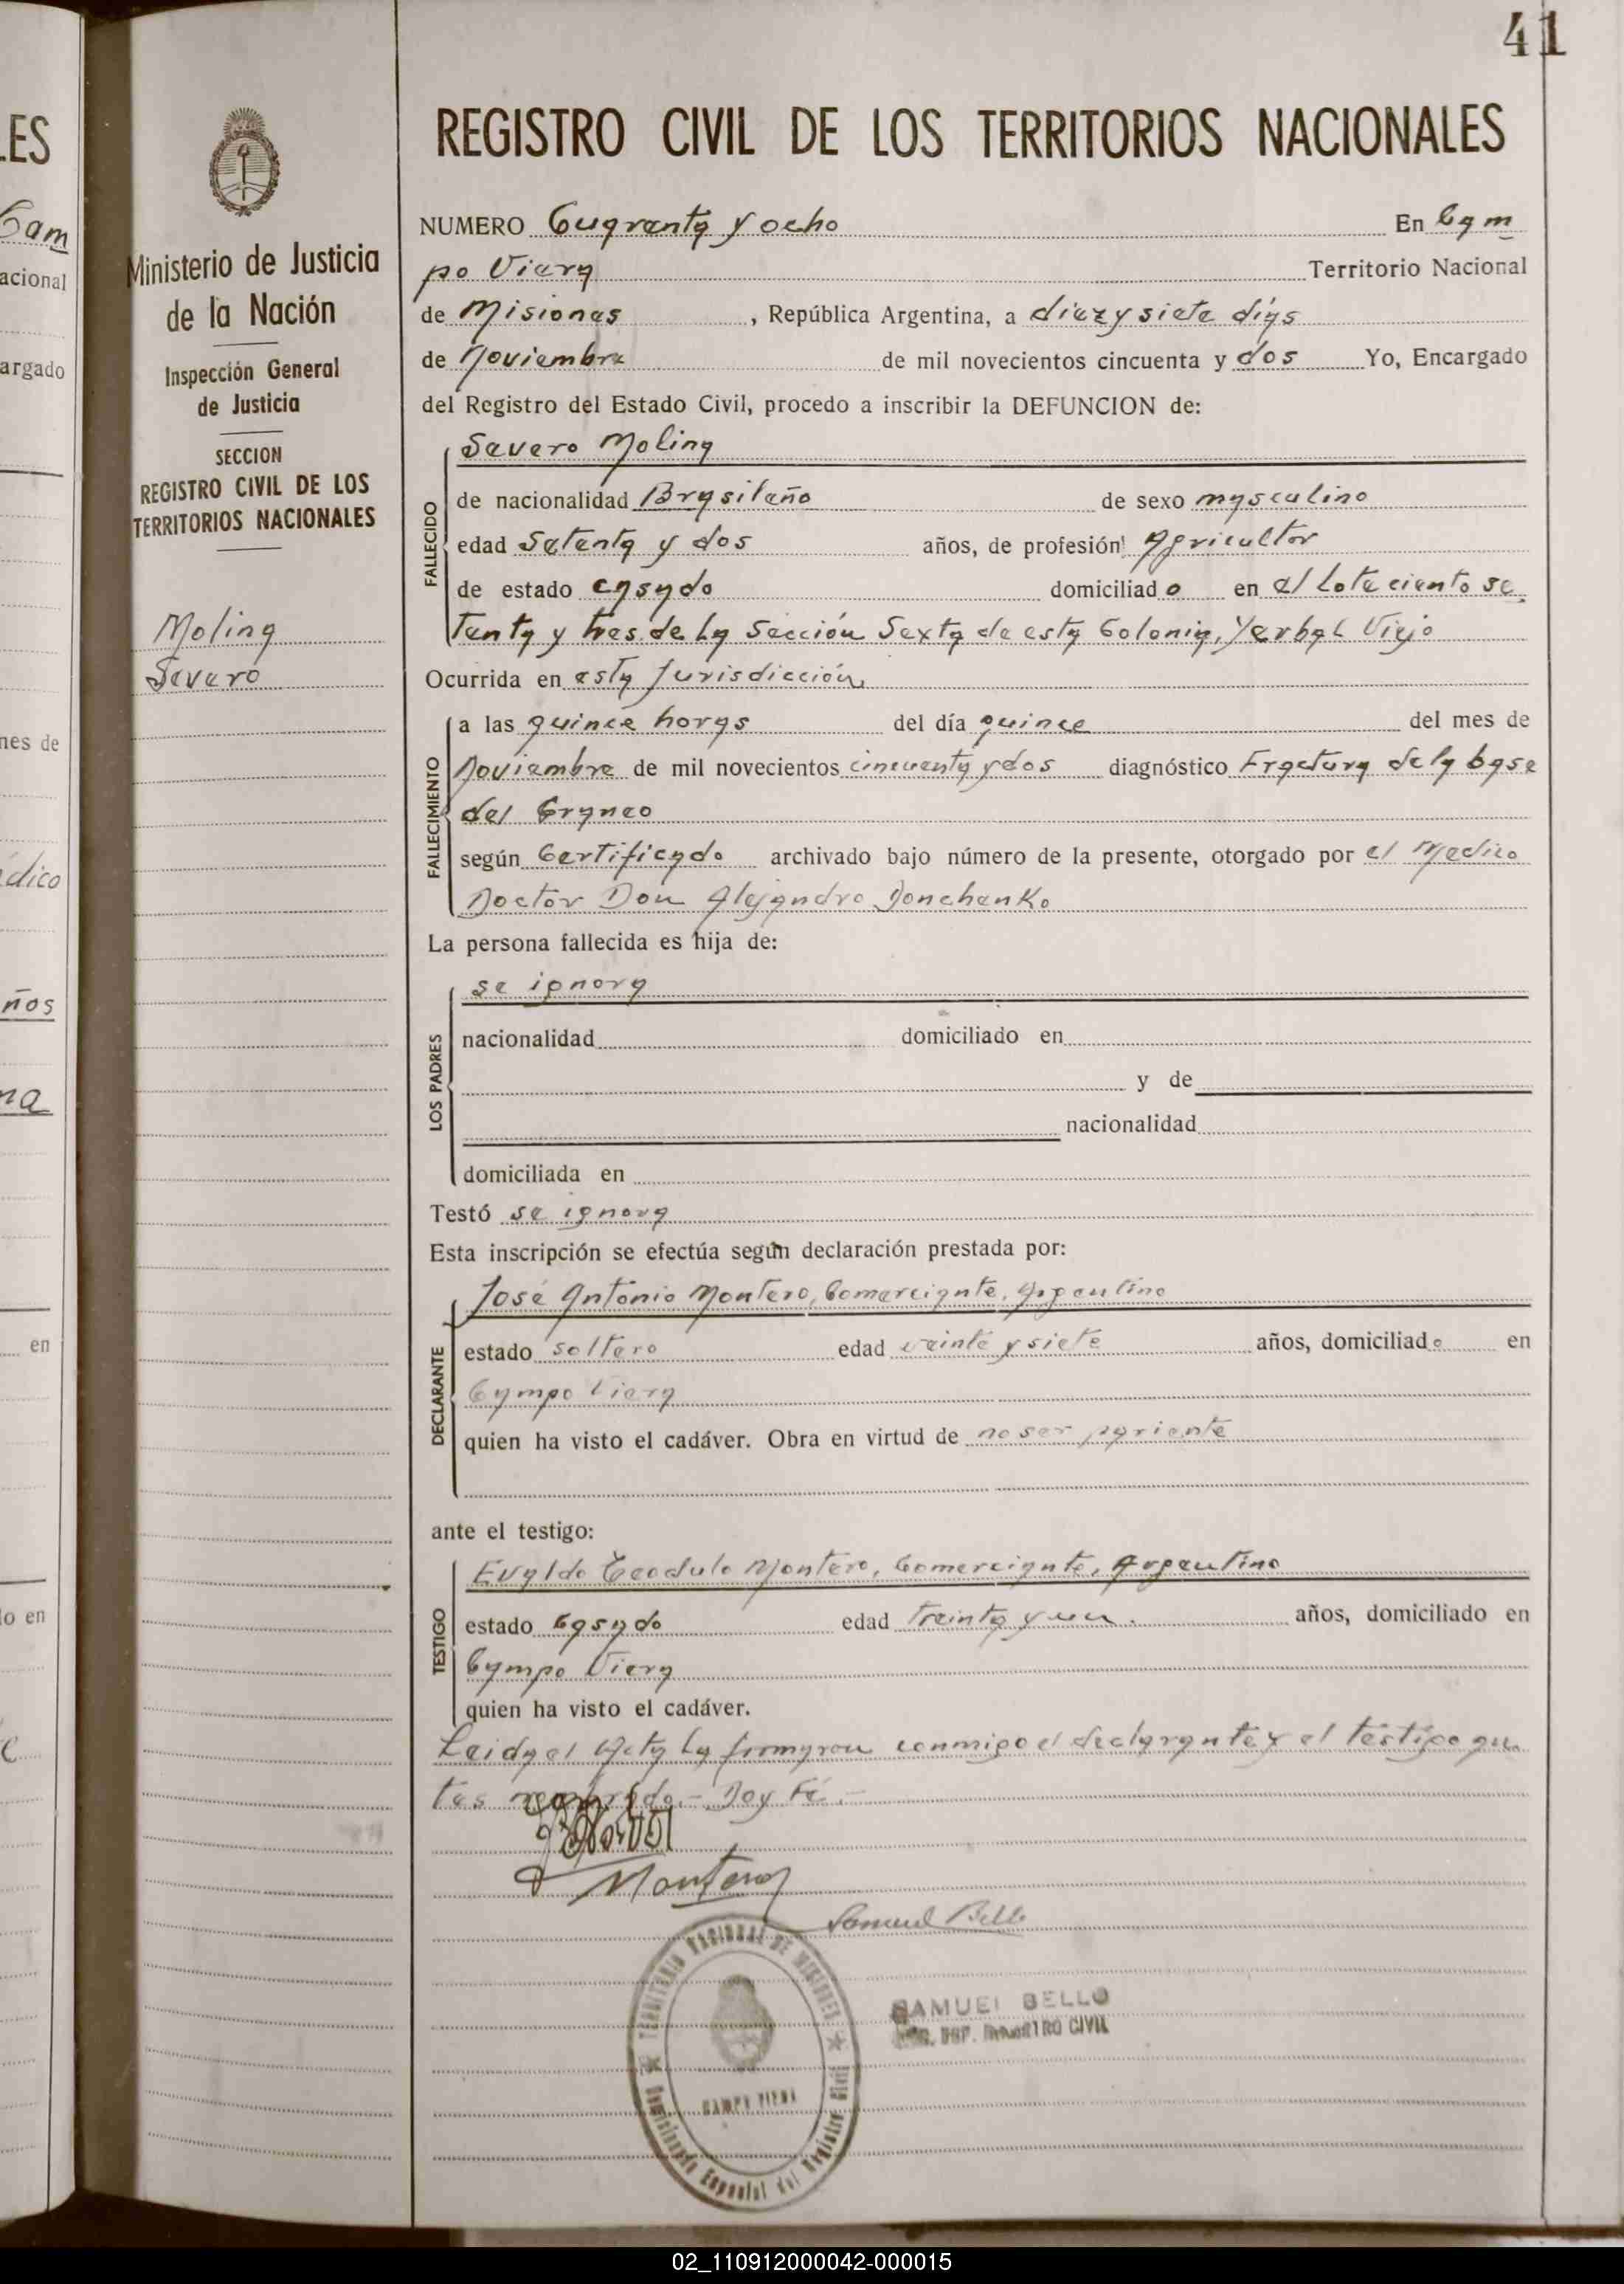 41
REGISTRO CIVIL DE LOS TERRITORIOS NACIONALES
Ministerio de Justicia
de la Nación
Inspección General
de Justicia
SECCION
REGISTRO CIVIL DE LOS
TERRITORIOS NACIONALES
Molina
Severo
NUMERO Cuarenta y ocho En Cam
po Viera Territorio Nacional
de Misiones, República Argentina, a diez y siete días
de Noviembre de mil novecientos cincuenta y dos Yo, Encargado
del Registro del Estado Civil, procedo a inscribir la DEFUNCION de:
FALLECIDO
Severo Molina
de nacionalidad Brasileño de sexo masculino
edad Setenta y dos años, de profesión Agricultor
de estado casado domiciliado en el Lote ciento se
tenta y tres de la Sección Sexta de esta Colonia, Yerbal Viejo
Ocurrida en esta Jurisdicción,
FALLECIMIENTO
a las quince horas del día quince del mes de
Noviembre de mil novecientos cincuenta y dos diagnóstico Fractura de la base
del Craneo
según Certificado archivado bajo número de la presente, otorgado por el Medico
Doctor Don Alejandro Donchenko
La persona fallecida es hija de:
LOS PADRES
se ignora
nacionalidad domiciliado en
y de
nacionalidad
domiciliada en
Testó se ignora
Esta inscripción se efectúa según declaración prestada por:
DECLARANTE
José Antonio Montero, Comerciante, Argentino
estado soltero edad veinte y siete años, domiciliado en
Campo Viera
quien ha visto el cadáver. Obra en virtud de no ser pariente
ante el testigo:
TESTIGO
Evaldo Teodulo Montero, Comerciante, Argentino
estado Casado edad treinta y un. años, domiciliado en
Campo Viera
quien ha visto el cadáver.
Leida el Acta La firmaron conmigo el declarante y el testigo an
tes nombrado.- Doy Fé.-
Montero
Samuel Bello
TERRITORIO NACIONAL DE MISIONES
CAMPO VIERA
Especial del Registro Civil
SAMUEL BELLO
REGISTRO CIVIL
02_110912000042-000015